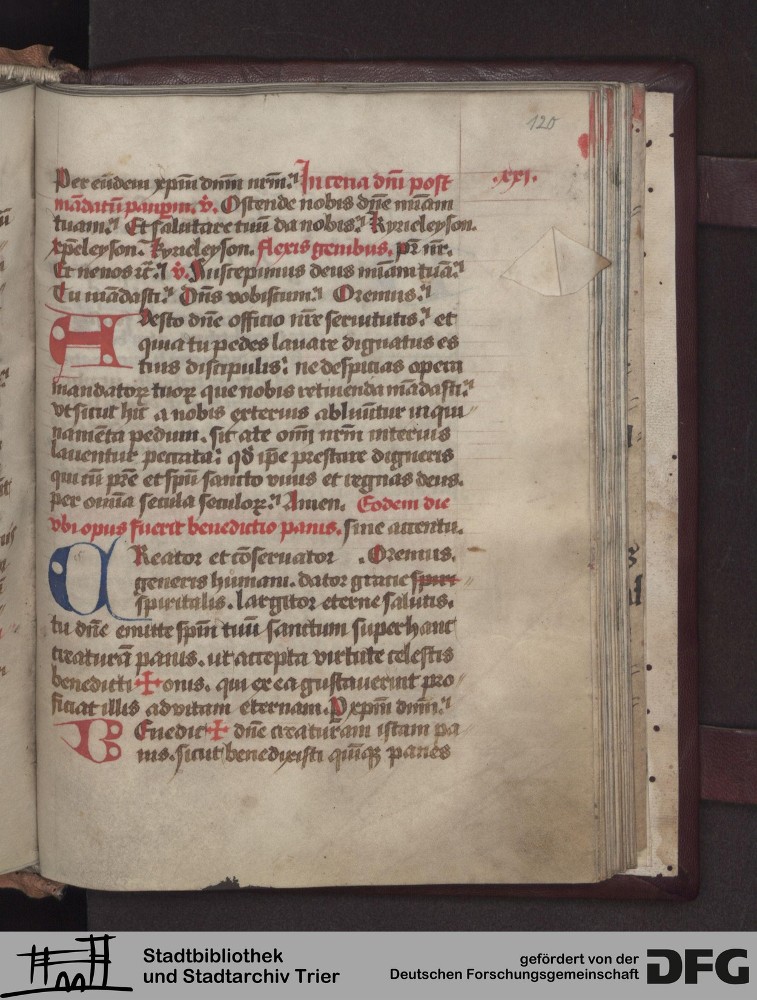 120
Per eūdem xp̄m dnm̄ nrm̄. In cena dn̄i post .xxi.
mādatū paupm. v̄. Ostende nobis dn̄e mīam
tuam. Et salutare tuū da nobis. Kyrieleyson.
xp̄eleyson. Kyrieleyson. flexis genibus. pr̄ nr̄.
Et ne nos īt. v̄. Suscepimus deus mīam tuā.
Tu mādasti. Dn̄s vobiscum. Oremus.
Adesto dn̄e officio nr̄e seruitutis. et
quia tu pedes lauare dignatus es
tuis discipulis. ne despicias opera
mandatoꝝ tuoꝝ que nobis retinenda mādasti.
vt sicut hic a nobis exterius abluūtur inqui
namēta pedum. sit a te om̄i nrm̄ interius
lauentur peccata. qd̄ ip̄e prestare digneris
qui cū pr̄e et spū sancto viuis et regnas deus.
per om̄ia secula seculoꝝ. Amen. Eodem die
vbi opus fuerit benedictio panis. sine accentu.
Creator et cōseruator . Oremus.
generis humani. dator gratie spiri
spiritalis. largitor eterne salutis.
tu dn̄e emitte spm̄ tuū sanctum super hanc
creaturā panis. ut accepta virtute celestis
benedicti + onis. qui ex ea gustauerint pro
ficiat illis ad vitam eternam. P xp̄m dnm̄.
Benedic + dn̄e creaturam istam pa
nis. sicut benedixisti quīqꝫ panes
Stadtbibliothek
und Stadtarchiv Trier
gefördert von der
Deutschen Forschungsgemeinschaft
DFG